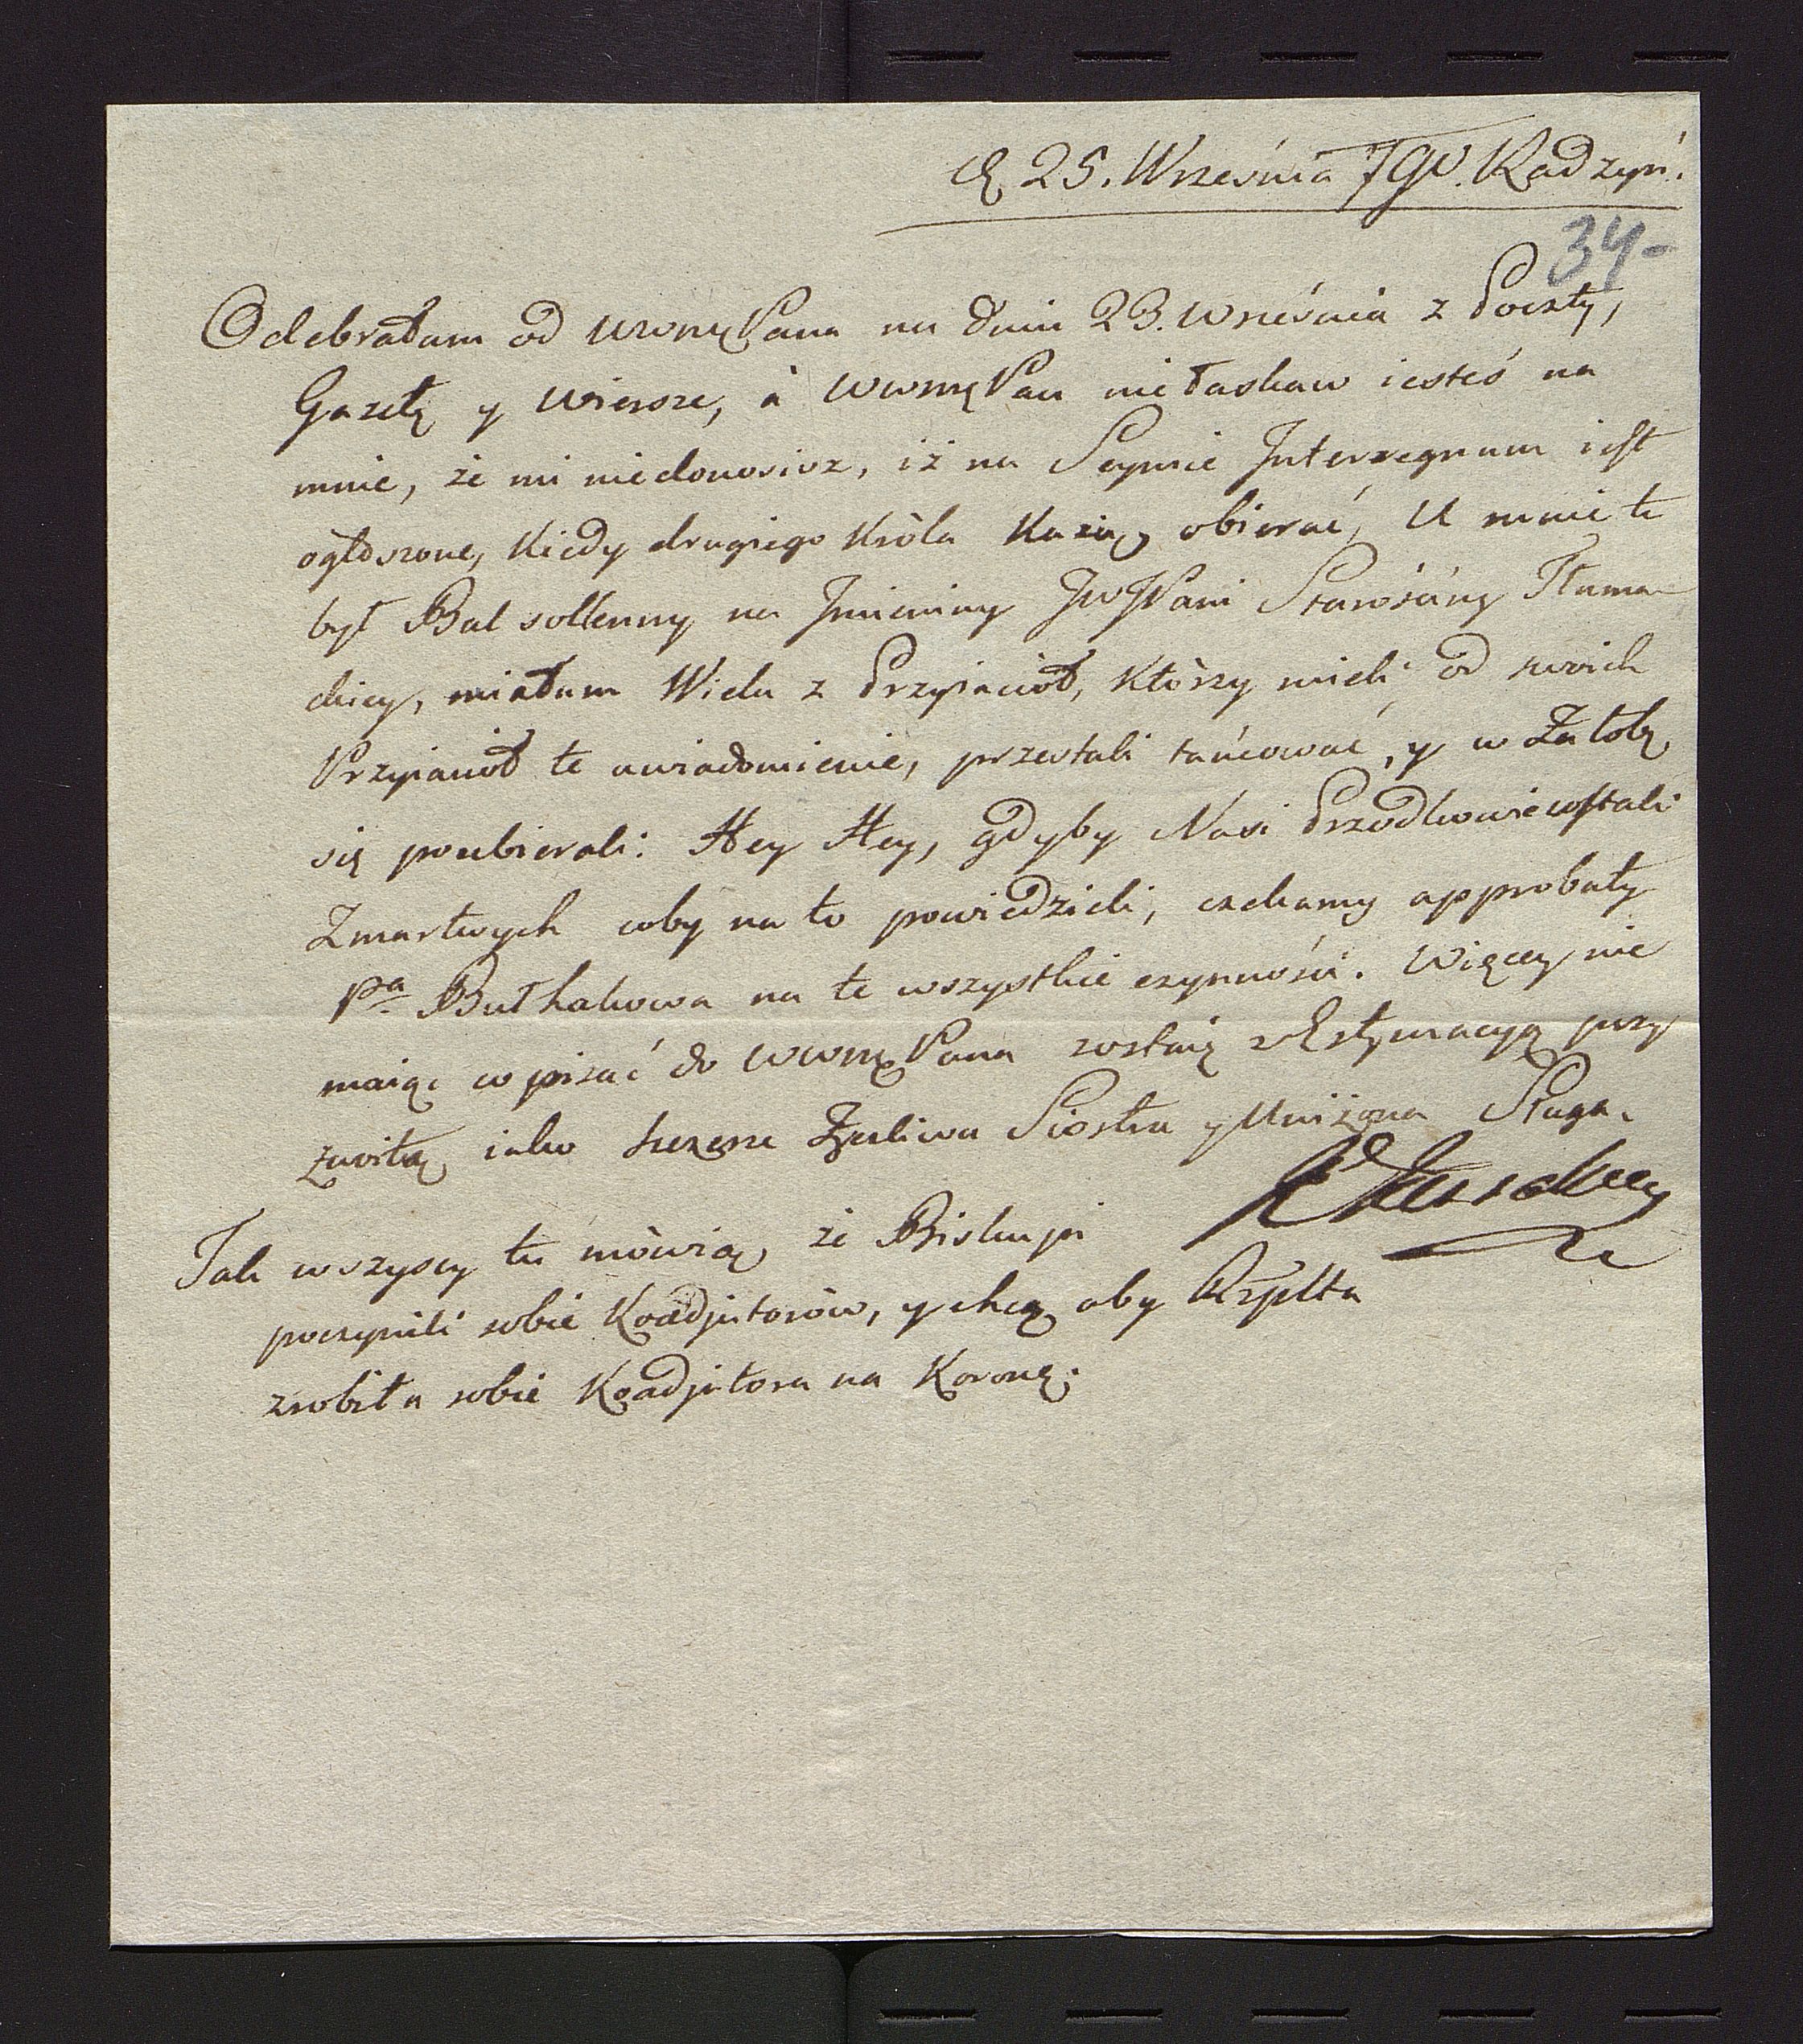 d 25. Września 790. Radzyń.
34-
Odebrałam od WWMę Pana na dniu 23. Wrześnią z Poczty,
Gazetę y Wiersze, à WWMę Pan nie łaskaw iesteś na
mnie, że mi niedonosisz, iż na Seymie Interregnum iest
ogłoszone, Kiedy drugiego Króla Każią obierać, U mnie tu
był Bal sollenny na Jmieniny JWJPani Starośćiny Tłuma-
ckiey, miałam Wielu z Przyiaciół, Którzy mieli od swoich
Przyiaciół te uwiadomienie, przestali tańcować, y w Żałobę
się poubierali: Hey Hey, gdyby Nasi Przodkowie wstali
Zmartwych coby na to powiedzieli, czekamy approbaty
Pa Bułhakowa na te wszystkie czynnośći. Więcey nie
maiąc co pisać do WWMę Pana zostaię z Estymacyą przy
zwoitą iako szczerze Życzliwa Siostra y Uniżona Sługa.
Tak wszyscy tu mówią, że Biskupi
poczynili sobie Koadjutorów, y chcą aby Rzplta
zrobiła sobie Koadjutora na Koronę.